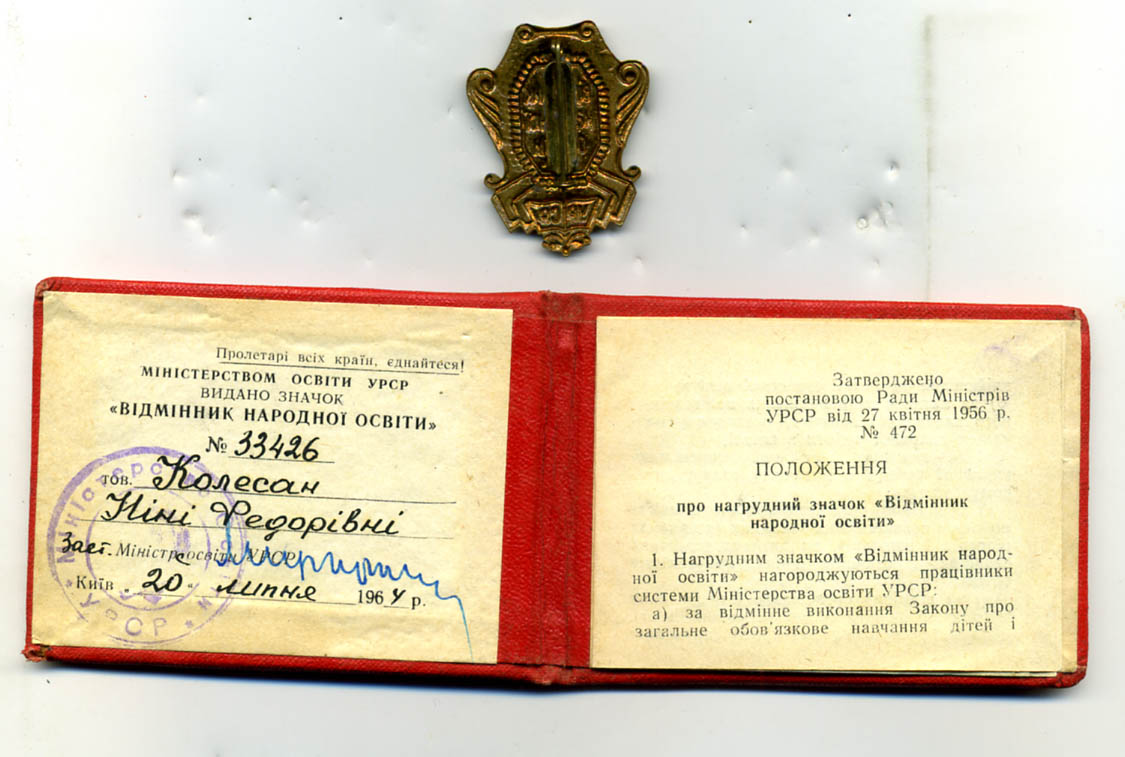 Пролетарі всіх країн, єднайтеся!
МІНІСТЕРСТВОМ ОСВІТИ УРСР
ВИДАНО ЗНАЧОК
«ВІДМІННИК НАРОДНОЇ ОСВІТИ»
№ 33426
тов. Колесан
Ніні Федорівні
Заст. Міністр освіти УРСР
Київ „20“ липня 1964 р.
УРСР
Затверджено
постановою Ради Міністрів
УРСР від 27 квітня 1956 р.
№ 472
ПОЛОЖЕННЯ
про нагрудний значок «Відмінник
народної освіти»
1. Нагрудним значком «Відмінник народ-
ної освіти» нагороджуються працівники
системи Міністерства освіти УРСР:
а) за відмінне виконання Закону про
загальне обов'язкове навчання дітей і